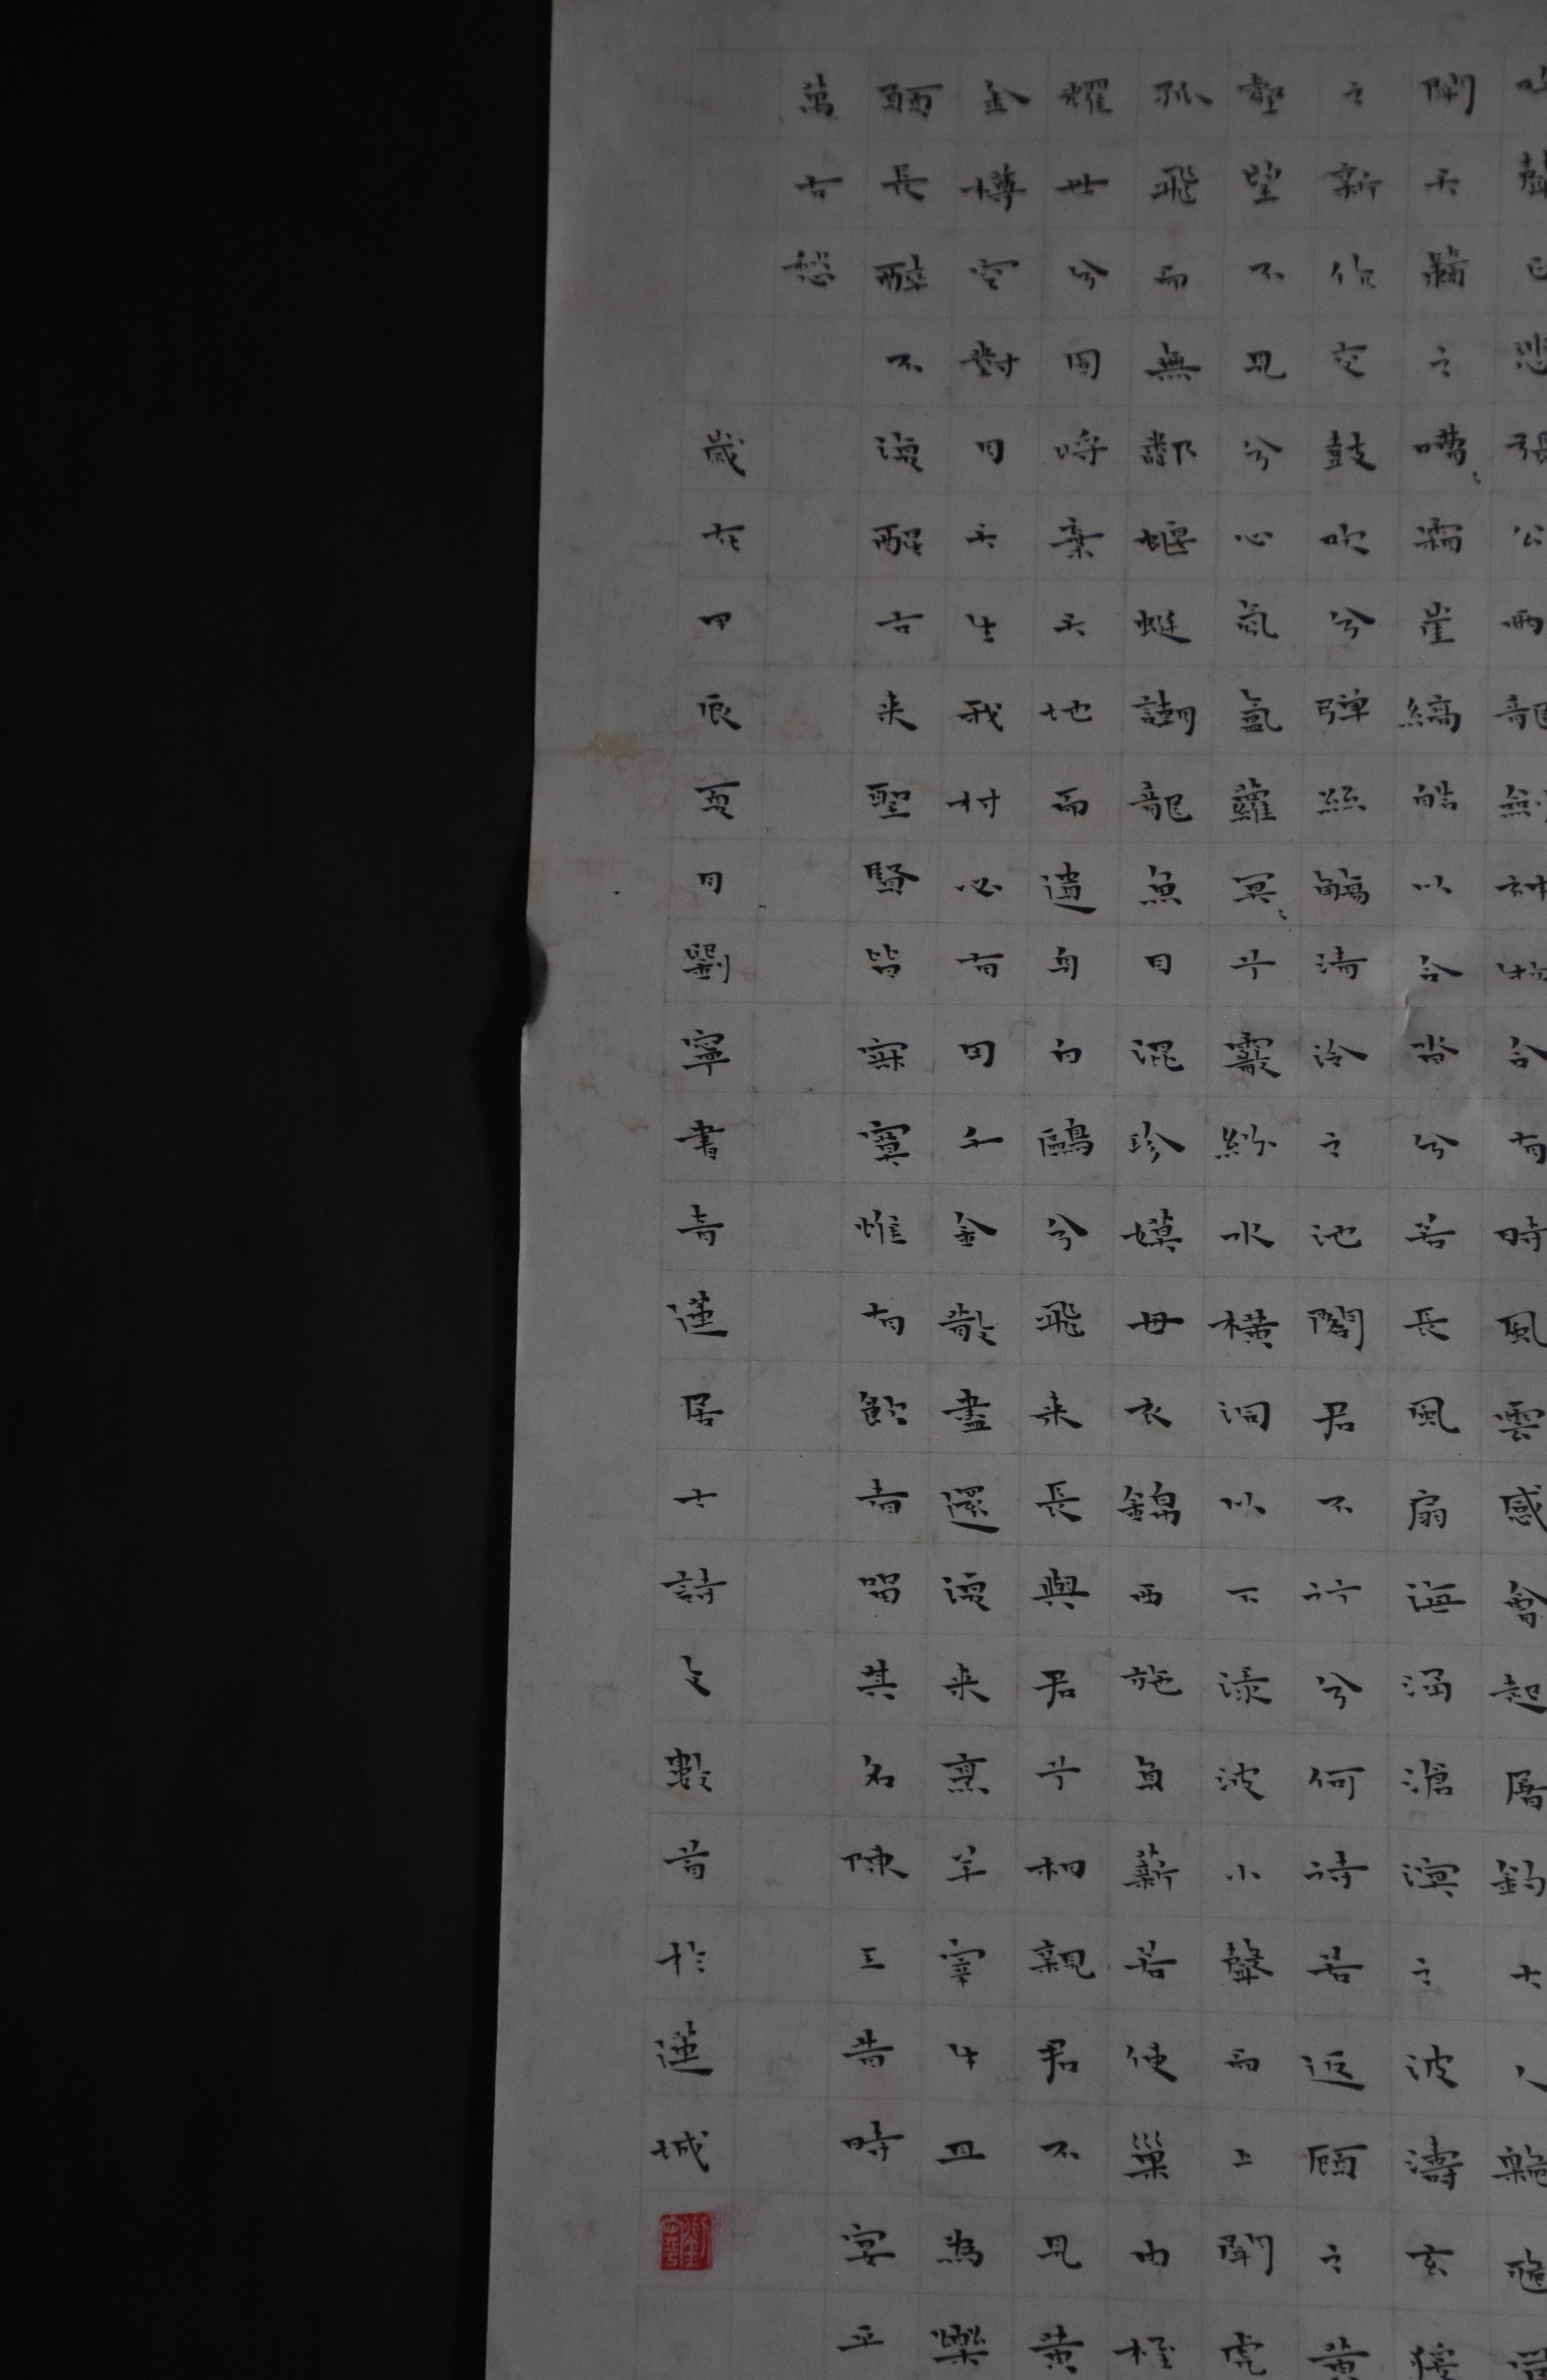 聲正悲張公兩龍劍神物合有時風雲感會起屠釣大人
聞天籟之嘈〻霜崖縞皓以合沓兮若長風扇海湧滄溟之波濤玄猿
之新作交鼓吹兮彈絲觴清泠之池閣君不行兮何待若返顧之黃
壑望不見兮心氛氳蘿冥〻兮霰紛水橫洞以下淥波小聲而上聞虎
孤飛而無鄰蝘蜓嘲龍魚目混珍嫫母衣錦西施負薪若使巢由桎
耀世兮固將棄天地而遺身白鷗兮飛來長與君兮相親君不見黃
金樽空對月天生我材必有用千金散盡還復來烹羊宰牛且為樂
願長醉不復醒古來聖賢皆寂寞惟有飲者留其名陳王昔時宴平
萬古愁
歲在甲辰夏月劉寧書青蓮居士詩文數首於蓮城